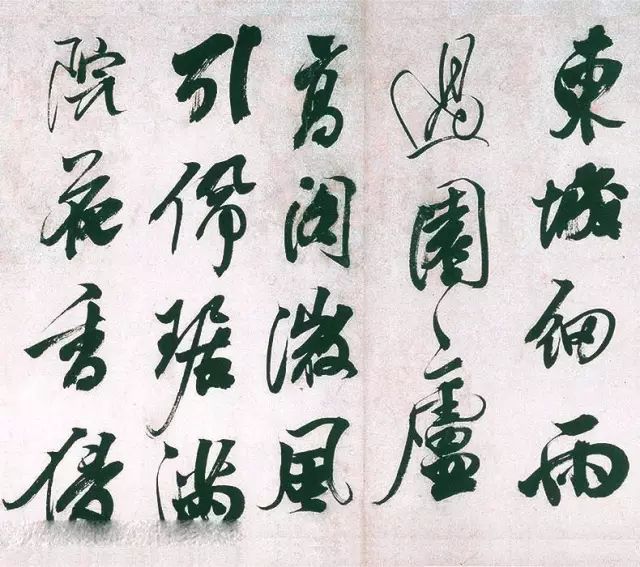 東城細雨
過園廬
高閣微風
引佩琚滿
院花香